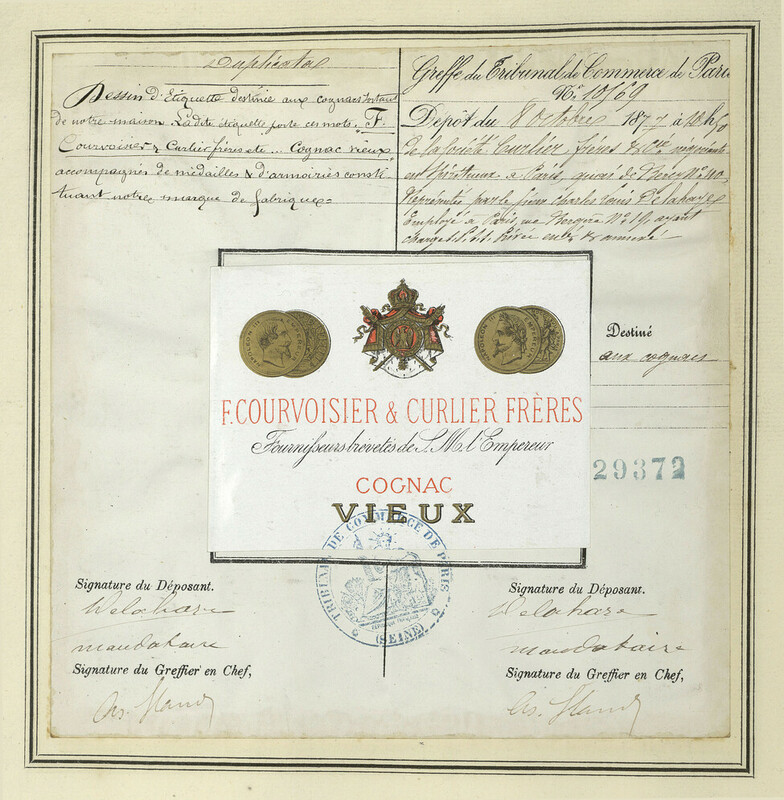 Duplicata
Dessin d'Etiquette destinée aux cognacs sortant
de notre maison. La dite étiquette porte ces mots. F.
Courvoisier & Curlier frères etc... Cognac vieux
accompagnés de médailles & d'armoiries consti-
tuant notre marque de fabrique.
Greffe du Tribunal de Commerce de Paris
No. 10169
Dépôt du 8 Octobre 1877 à
de la société Curlier frères & Cie négociants
à Paris, quai de Bercy No. 40,
Représentée par le sieur Charles Louis Delahaye
Employé à Paris, rue Bergère No. 19, ayant
charge
NAPOLEON III EMPEREUR
NAPOLEON III EMPEREUR
F. COURVOISIER & CURLIER FRÈRES
Fournisseurs brevetés de S. M. l'Empereur
COGNAC
VIEUX
Destiné
aux cognacs
29372
TRIBUNAL DE COMMERCE DE PARIS
(SEINE)
Signature du Déposant.
Delahaye
mandataire
Signature du Greffier en Chef,
Signature du Déposant.
Delahaye
mandataire
Signature du Greffier en Chef,